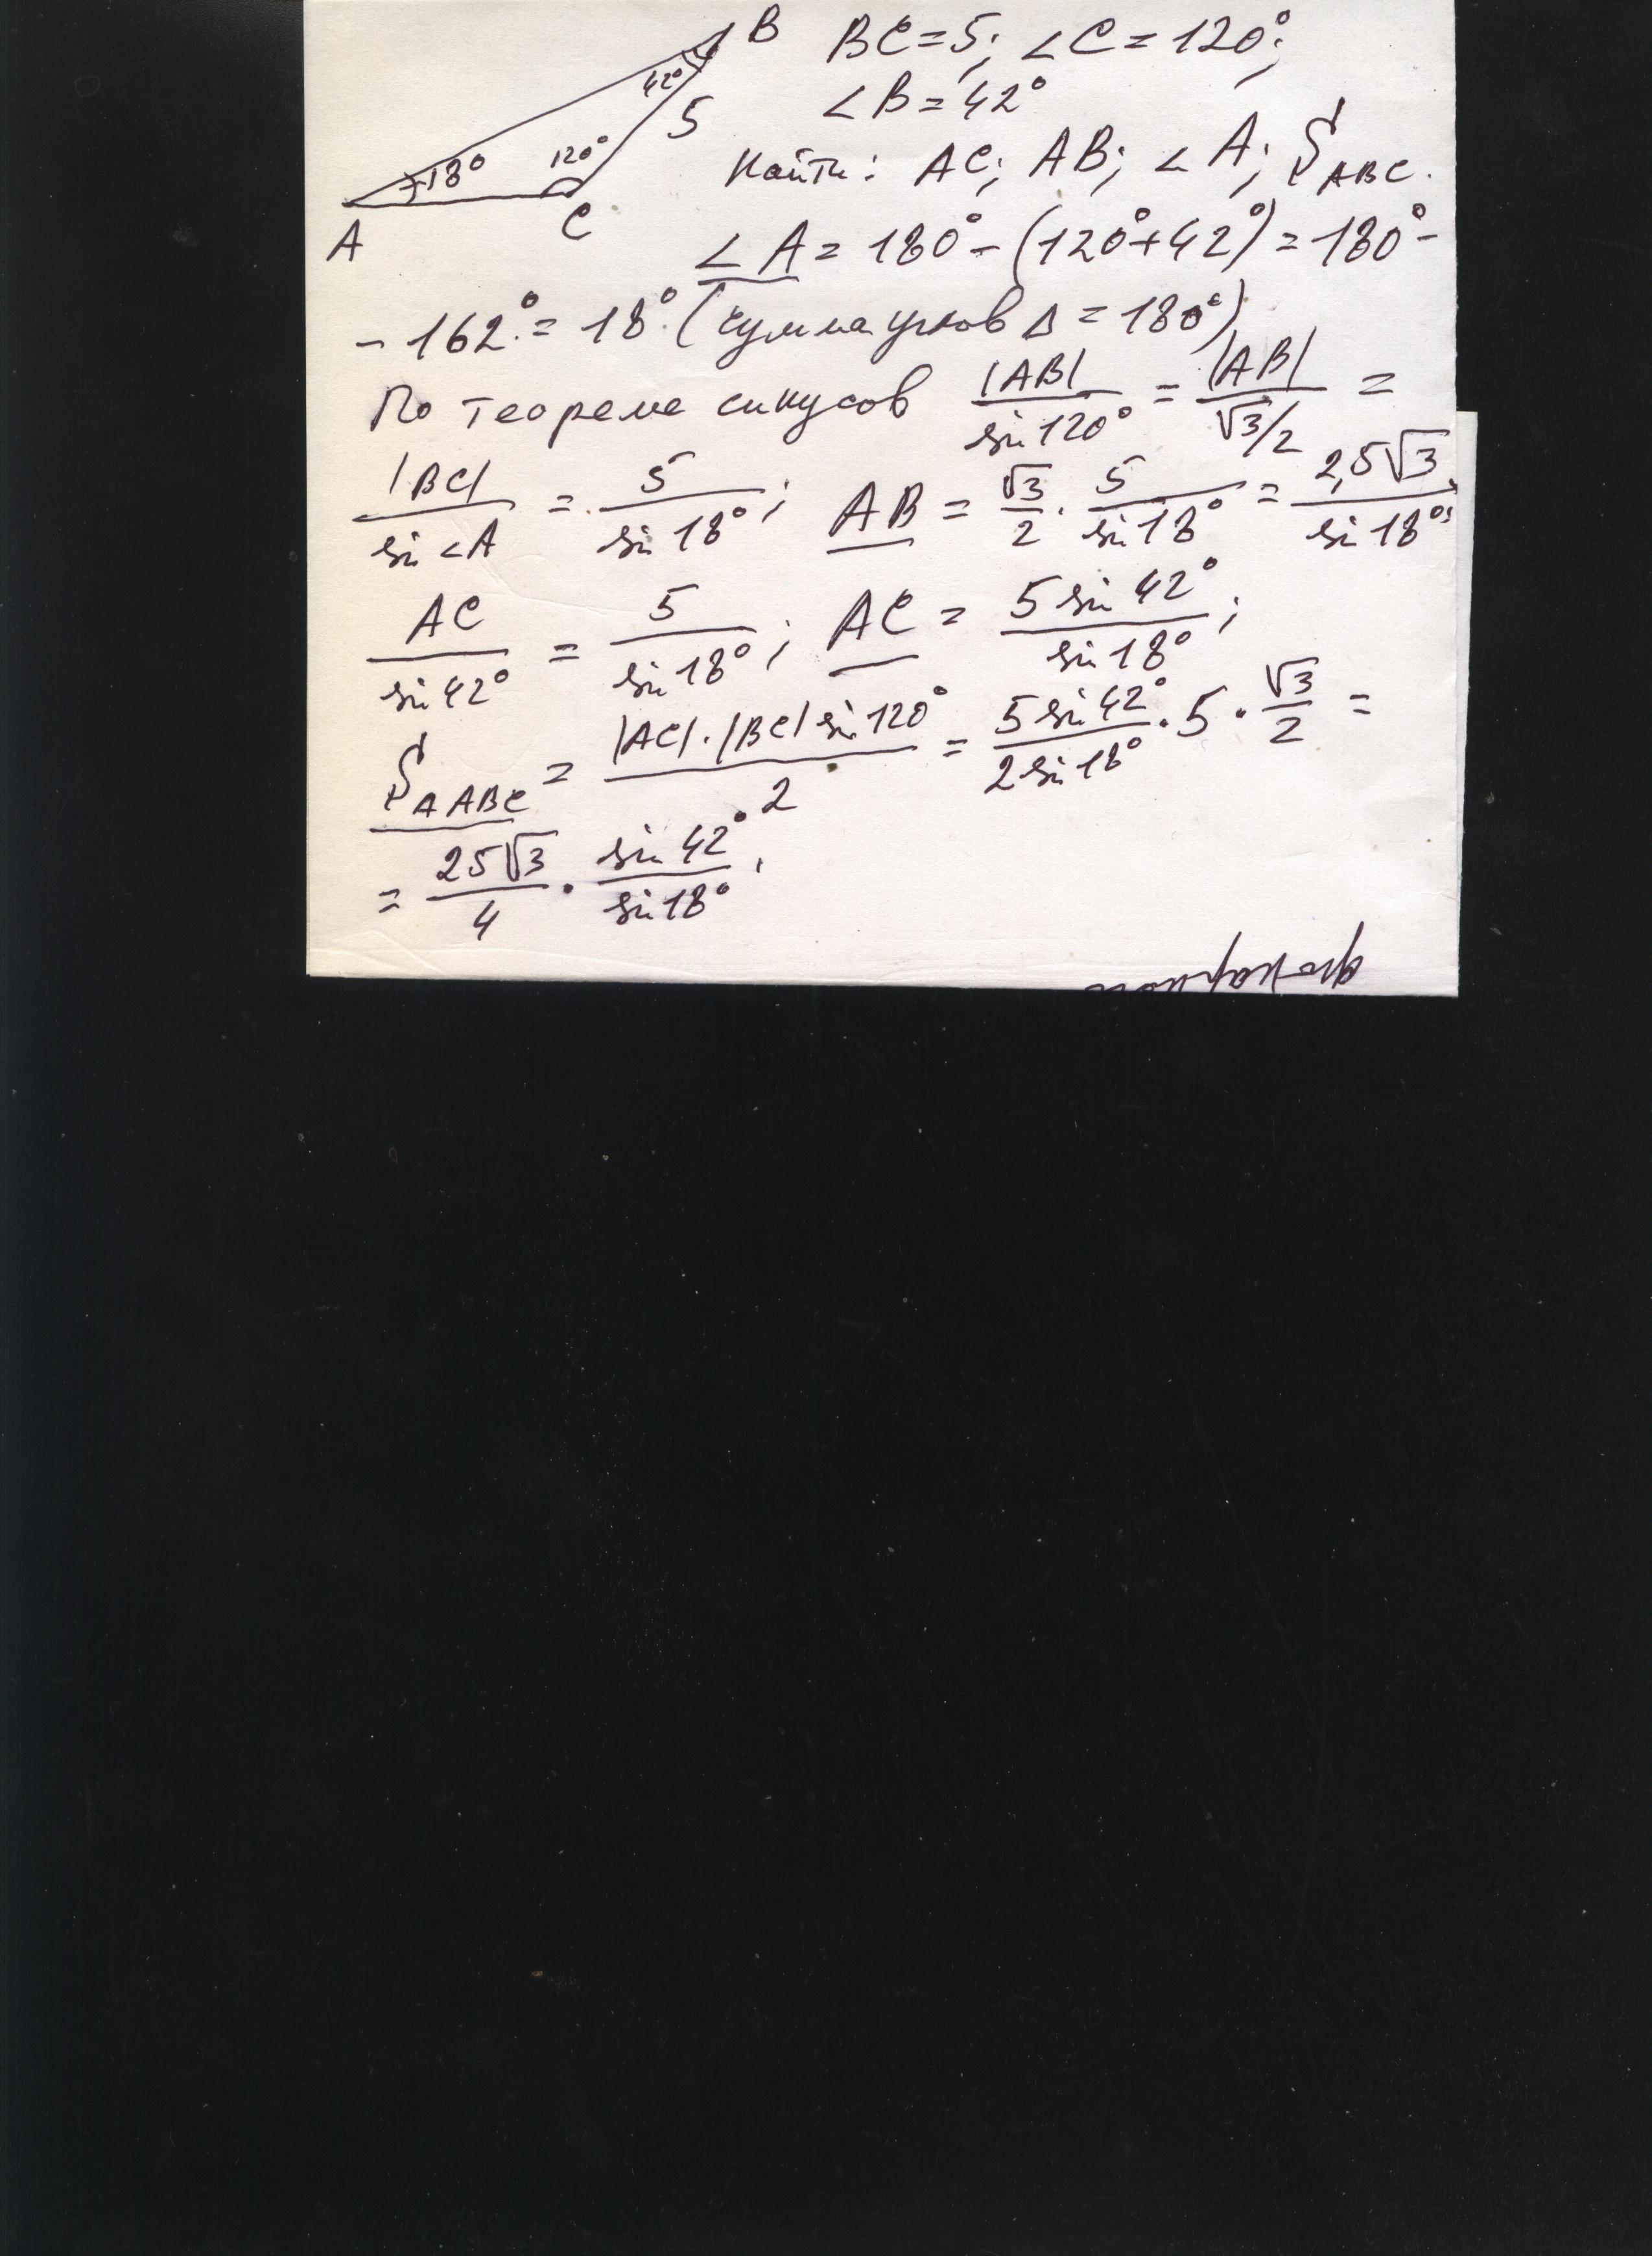 B BC=5; ∠C=120°;
42° ∠B=42°
5
18° 120° Найти: AC; AB; ∠A; S_ABC.
A C
∠A = 180° - (120°+42°) = 180° -
- 162° = 18° (сумма углов Δ = 180°)
По теореме синусов |AB|/sin120° = |AB|/(√3/2) =
|BC|/sin∠A = 5/sin18°; AB = √3/2 · 5/sin18° = 2,5√3/sin18°;
AC/sin42° = 5/sin18°; AC = 5sin42°/sin18°;
S_ΔABC = |AC|·|BC|sin120°/2 = 5sin42°/2sin18° · 5 · √3/2 =
= 25√3/4 · sin42°/sin18°.